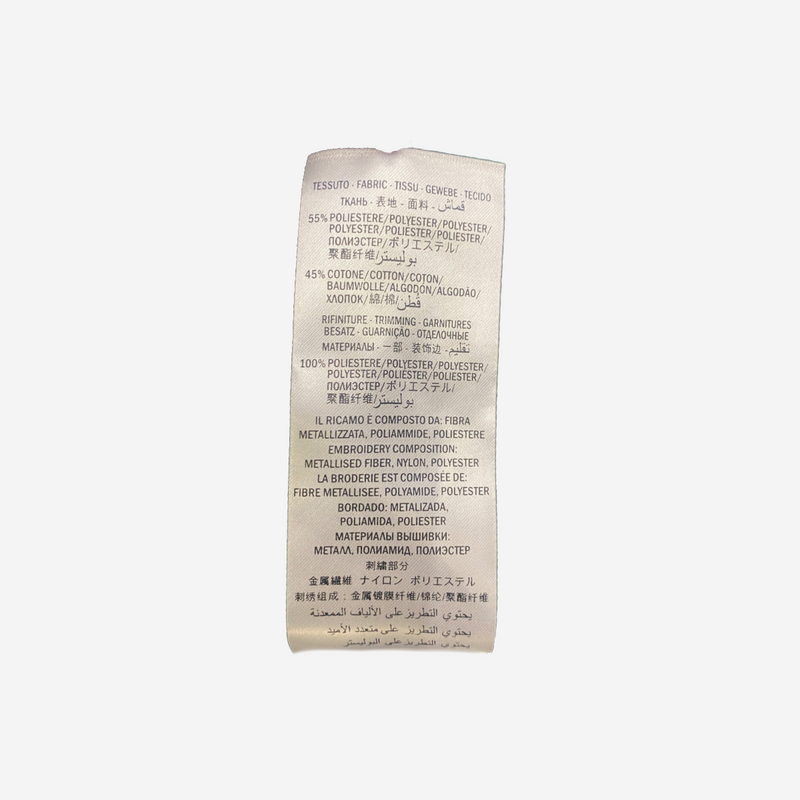 TESSUTO - FABRIC - TISSU - GEWEBE - TECIDO
ТКАНЬ - 表地 - 面料 - قماش
55% POLIESTERE/POLYESTER/POLYESTER/
POLYESTER/POLIÉSTER/POLIESTER/
ПОЛИЭСТЕР/ポリエステル/
聚酯纤维/بوليستر
45% COTONE/COTTON/COTON/
BAUMWOLLE/ALGODÓN/ALGODÃO/
ХЛОПОК/綿/棉/قطن
RIFINITURE - TRIMMING - GARNITURES
BESATZ - GUARNIÇÃO - ОТДЕЛОЧНЫЕ
МАТЕРИАЛЫ - 一部 - 装饰边 - تقليم
100% POLIESTERE/POLYESTER/POLYESTER/
POLYESTER/POLIÉSTER/POLIESTER/
ПОЛИЭСТЕР/ポリエステル/
聚酯纤维/بوليستر
IL RICAMO È COMPOSTO DA: FIBRA
METALLIZZATA, POLIAMMIDE, POLIESTERE
EMBROIDERY COMPOSITION:
METALLISED FIBER, NYLON, POLYESTER
LA BRODERIE EST COMPOSÉE DE:
FIBRE METALLISEE, POLYAMIDE, POLYESTER
BORDADO: METALIZADA,
POLIAMIDA, POLIESTER
МАТЕРИАЛЫ ВЫШИВКИ:
МЕТАЛЛ, ПОЛИАМИД, ПОЛИЭСТЕР
刺繍部分
金属繊維 ナイロン ポリエステル
刺绣组成：金属镀膜纤维/锦纶/聚酯纤维
يحتوي التطريز على الألياف الممعدنة
يحتوي التطريز على متعدد الأميد
يحتوي التطريز على البوليستر